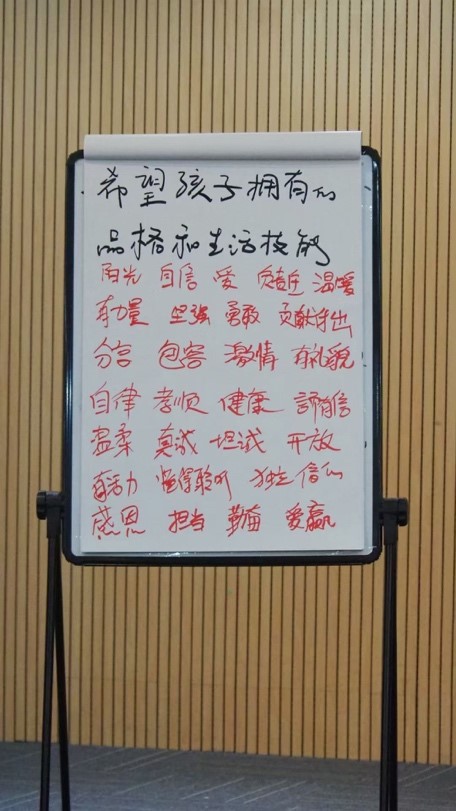 希望孩子拥有的
品格和生活技能
阳光 自信 爱 负责任 温暖
有力量 坚强 勇敢 贡献付出
分享 包容 激情 有礼貌
自律 孝顺 健康 诚信
温柔 真诚 坦诚 开放
有活力 懂得聆听 独立
感恩 担当 勤奋 爱赢